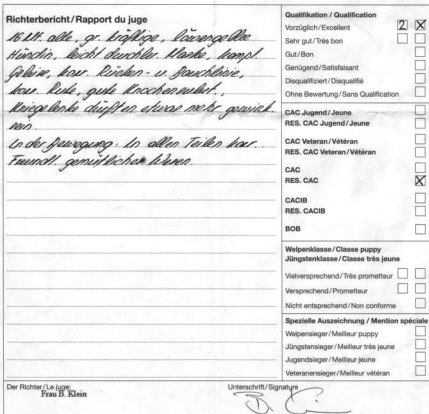 Richterbericht / Rapport du juge
16 Mt. alte, gr. kräftige, löwengelbe
Hündin, leicht durchbr. Maske, kompl.
Gebiss, korr. Rücken- u. Bauchlinie,
korr. Rute, gute Knochensubst.,
Kniegelenke dürften etwas mehr gewink.
sein.
In der Bewegung in allen Teilen korr.
Freundl. gemütliches Wesen.
Der Richter / Le juge:
Frau B. Klein
Unterschrift / Signature
Qualifikation / Qualification
Vorzüglich / Excellent 2 X
Sehr gut / Très bon
Gut / Bon
Genügend / Satisfaisant
Disqualifiziert / Disqualifié
Ohne Bewertung / Sans Qualification
CAC Jugend / Jeune
RES. CAC Jugend / Jeune
CAC Veteran / Vétéran
RES. CAC Veteran / Vétéran
CAC
RES. CAC X
CACIB
RES. CACIB
BOB
Welpenklasse / Classe puppy
Jüngstenklasse / Classe très jeune
Vielversprechend / Très prometteur
Versprechend / Prometteur
Nicht entsprechend / Non conforme
Spezielle Auszeichnung / Mention spéciale
Welpensieger / Meilleur puppy
Jüngstensieger / Meilleur très jeune
Jugendsieger / Meilleur jeune
Veteranensieger / Meilleur vétéran